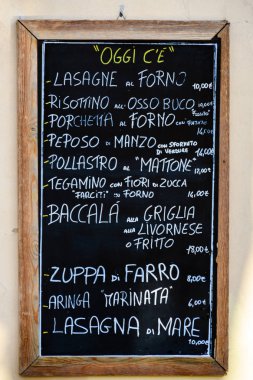 "OGGI C'È"
LASAGNE AL FORNO 10,00€
RISOTTINO ALL'OSSO BUCO 10,00€
PORCHETTA AL FORNO CON
PEPOSO DI MANZO CON SFORMATO
DI VERDURE 14,00€
POLLASTRO AL "MATTONE" 12,00€
TEGAMINO CON FIORI DI ZUCCA
"FARCITI" IN FORNO 16,00€
BACCALÀ ALLA GRIGLIA
ALLA LIVORNESE
O FRITTO
18,00€
ZUPPA DI FARRO 8,00€
ARINGA "MARINATA" 6,00€
LASAGNA DI MARE
10,00€